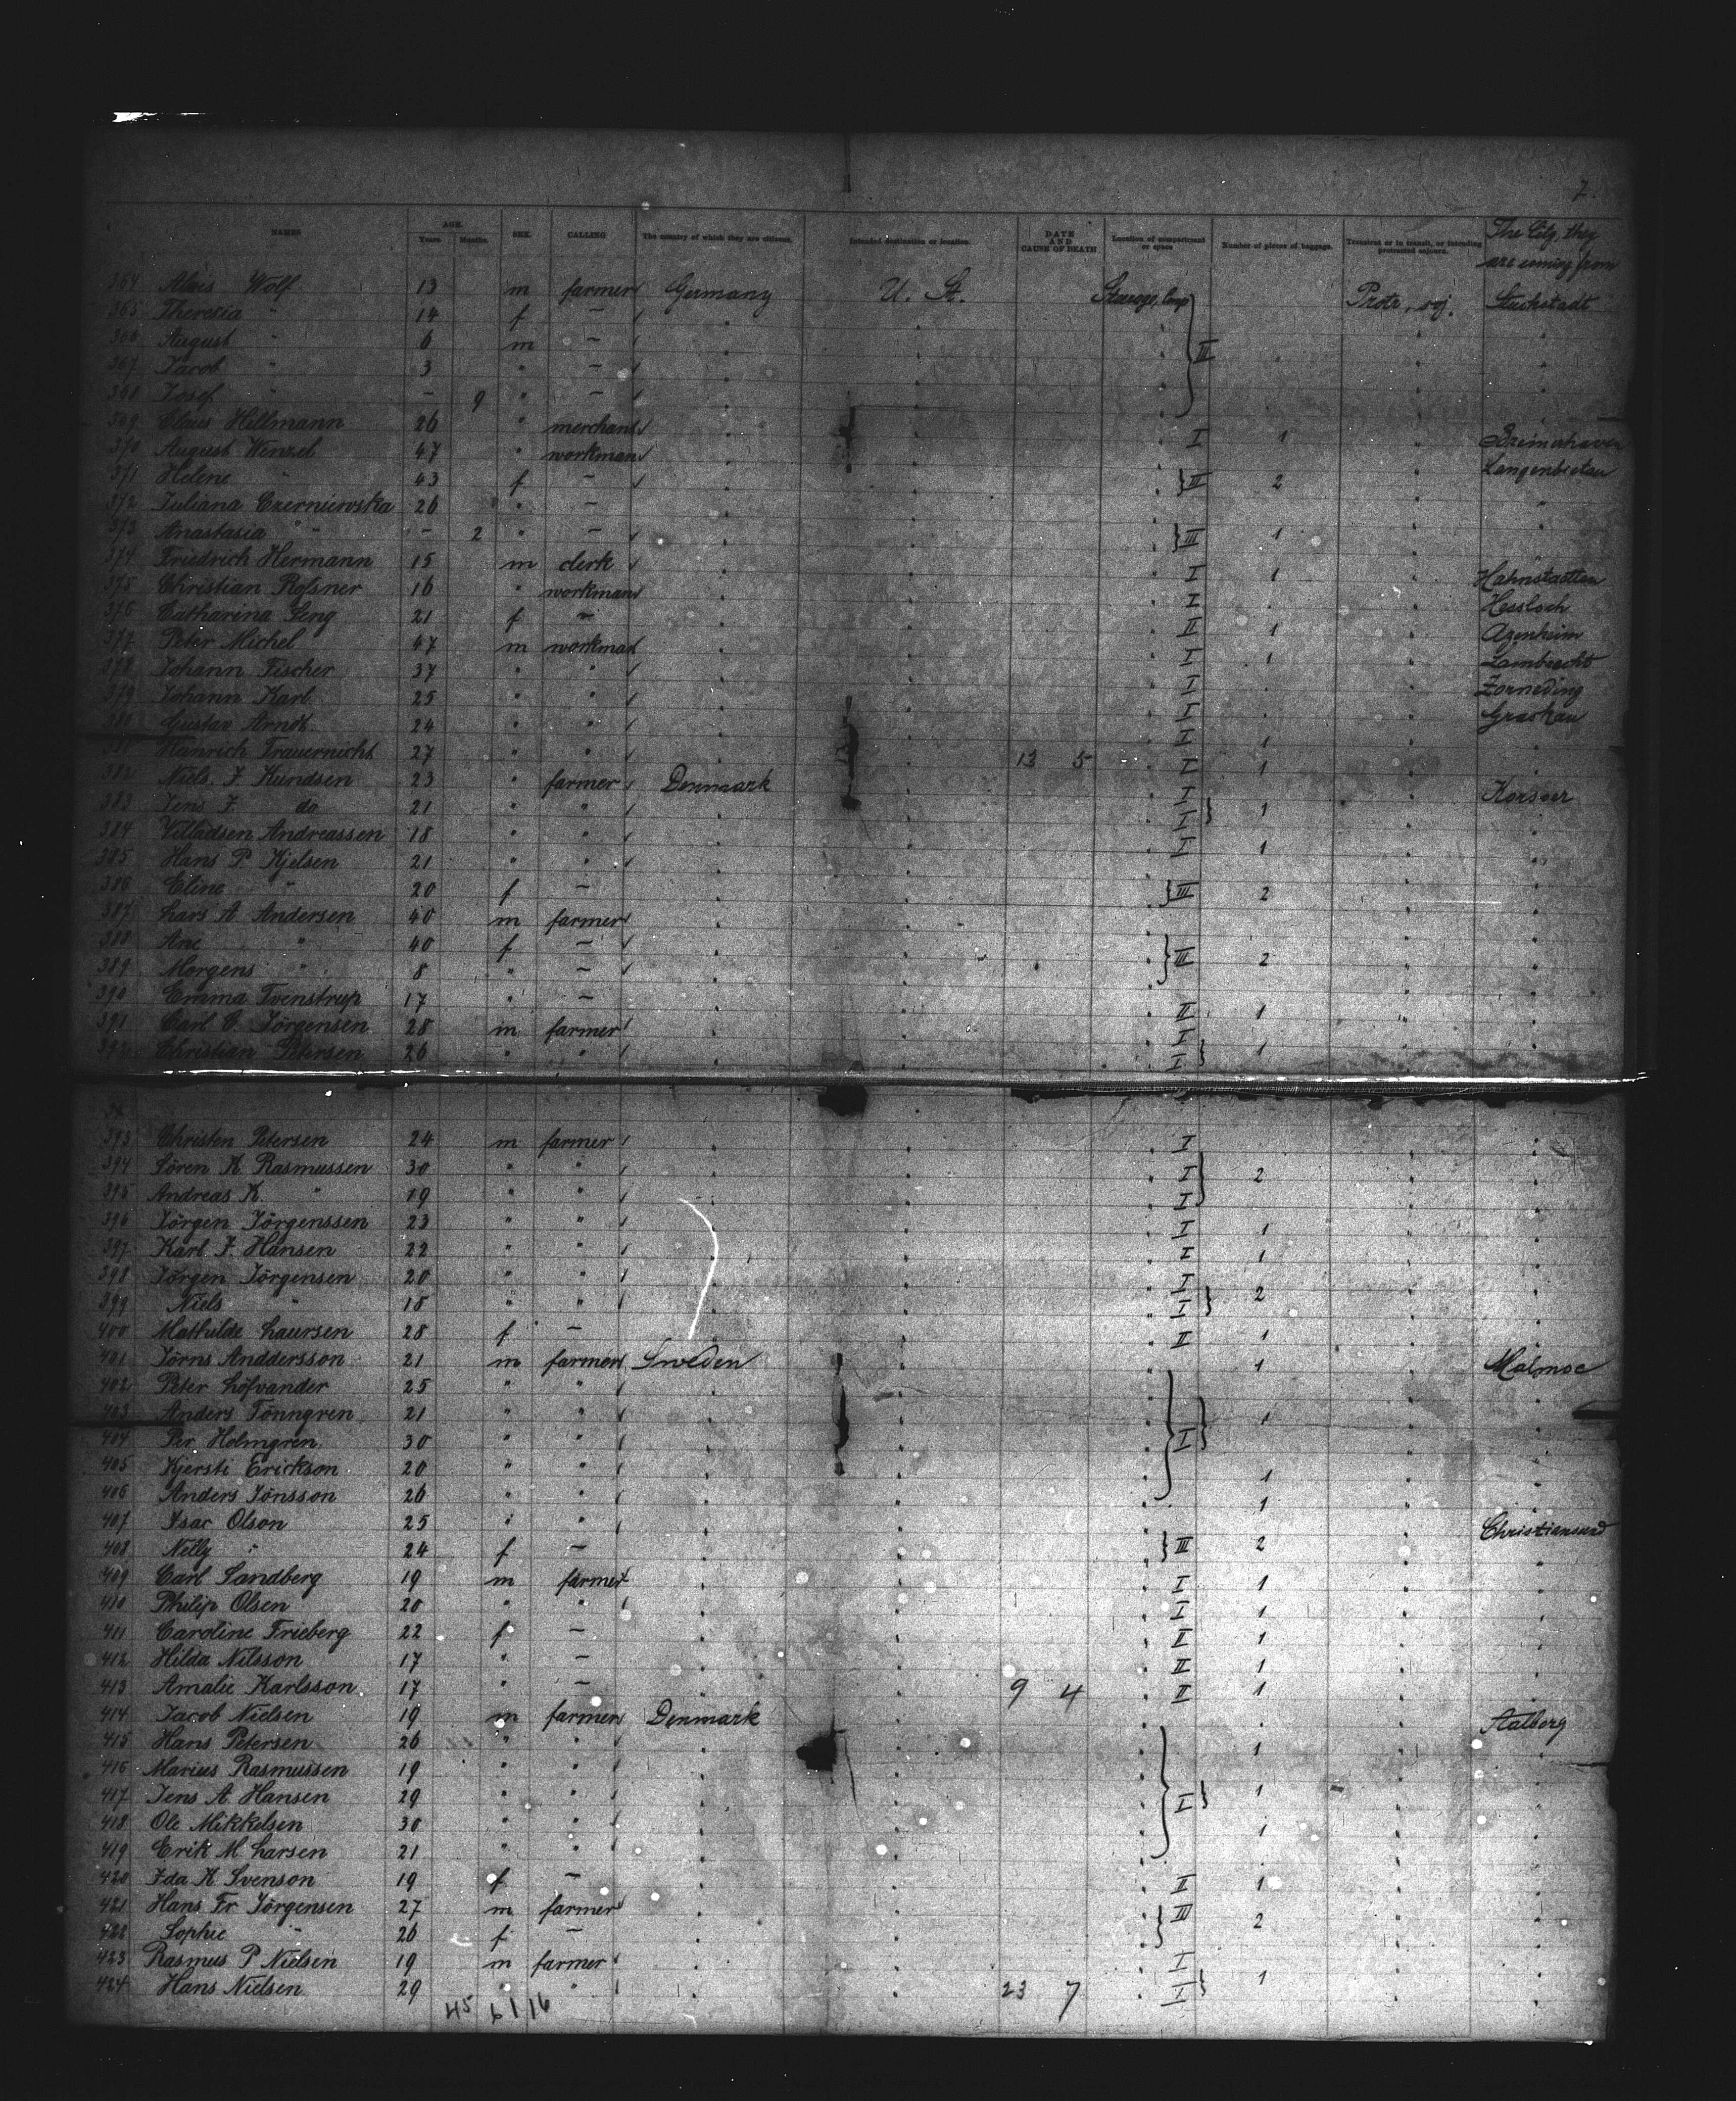 7.
NAMES AGE. Years Months. SEX. CALLING The country of which they are citizens. Intended destination or location. DATE AND CAUSE OF DEATH Location of compartment or space Number of pieces of baggage. Transient or in transit, or intending protracted sojourn. The City, they are coming from
364 Alois Wolf 13 m farmer Germany U. St. Steerage, Comp Protr. soj.
365 Theresia " 14 f — "
366 August " 6 m — " III
367 Jacob " 3 " — "
368 Josef " — 9 " — "
369 Claus Hillmann 26 " merchant " I 1 " Bremerhaven
370 August Wenzel 47 " workman " Langenbielau
371 Helene " 43 f — " III 2 "
372 Juliana Czerniewska 26 " — "
373 Anastasia " — 2 " — " III 1
374 Friedrich Hermann 15 m clerk " I 1 Hahnstaetten
375 Christian Rossner 16 " workman " I Hessloch
376 Catharina Geng 21 f — " II 1 Azenheim
377 Peter Michel 47 m workman " I 1 Lambrecht
378 Johann Fischer 37 " " " I Zorneding
379 Johann Karl 25 " " " I
380 Gustav Arndt 24 " " " I 1 "
381 Heinrich Trauernicht 27 " " " 13 5 I 1 "
382 Niels. J. Kundsen 23 " farmer Denmark I Korsoer
383 Jens J. do 21 " " " I 1 "
384 Villadsen Andreassen 18 " " " I "
385 Hans P. Kjelsen 21 " " " 1 "
386 Eline " 20 f — " III 2 "
387 Lars A. Andersen 40 m farmer "
388 Ane " 40 f — " III 2 "
389 Morgens " 8 " — " "
390 Emma Tvenstrup 17 " — " II 1 "
391 Carl C. Jörgensen 28 m farmer " I "
392 Christian Petersen 26 " " " I 1 "
393 Christen Petersen 24 m farmer " I "
394 Sören K Rasmussen 30 " " " I 2 "
395 Andreas K. " 19 " " " I "
396 Jörgen Jörgenssen 23 " " " I 1 "
397 Karl J. Hansen 22 " " " I 1 "
398 Jörgen Jörgensen 20 " " " I "
399 Niels " 18 " " " I 2 "
400 Mathilde Laursen 28 f — " II 1 "
401 Jörns Anddersson 21 m farmer Sweden 1 Malmoe
402 Peter Löfvander 25 " " " "
403 Anders Tönngren 21 " " " 1 "
404 Per Holmgren 30 " " " I "
405 Kjersti Erickson 20 " " " 1 "
406 Anders Jönsson 26 " " " 1 "
407 Isac Olson 25 " " " Christiansand
408 Nelly " 24 f — " III 2 "
409 Carl Sandberg 19 m farmer " I 1 "
410 Philip Olsen 20 " " " I 1 "
411 Caroline Frieberg 22 f — " II 1 "
412 Hilda Nilsson 17 " — " II 1 "
413 Amalie Karlsson 17 " — " 9 4 II 1 "
414 Jacob Nielsen 19 m farmer Denmark Aalborg
415 Hans Petersen 26 " " " 1 "
416 Marius Rasmussen 19 " " " "
417 Jens A. Hansen 29 " " " I 1 "
418 Ole Mikkelsen 30 " " " 1 "
419 Erik M. Larsen 21 " " " "
420 Ida K Svenson 19 f — " II 1 "
421 Hans Fr. Jörgensen 27 m farmer " III "
422 Sophie " 26 f — " 2 "
423 Rasmus P Nielsen 19 m farmer " I "
424 Hans Nielsen 29 " " " 23 7 I 1 "
45 6 1 16